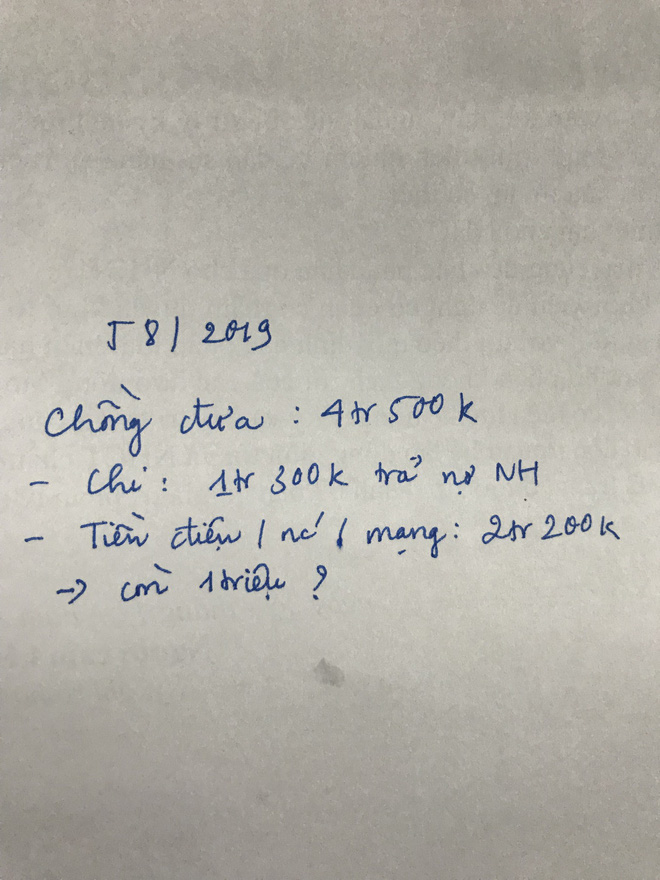 T 8 / 2019
Chồng đưa : 4tr 500 k
- Chi : 1tr 300 k trả nợ NH
- Tiền điện / nc' / mạng : 2tr 200 k
→ còn 1 triệu ?